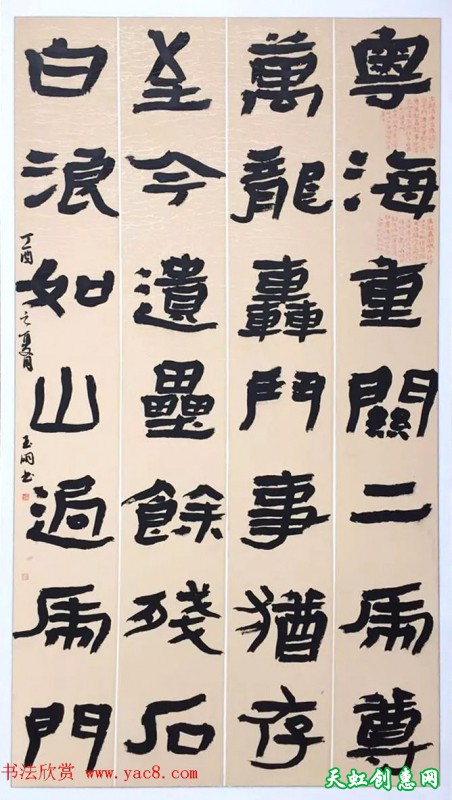 粵海重關二虎尊
萬龍轟鬥事猶存
至今遺壘餘殘石
白浪如山過虎門
丁酉之夏月
书法欣赏 www.yac8.com
天虹创惠网